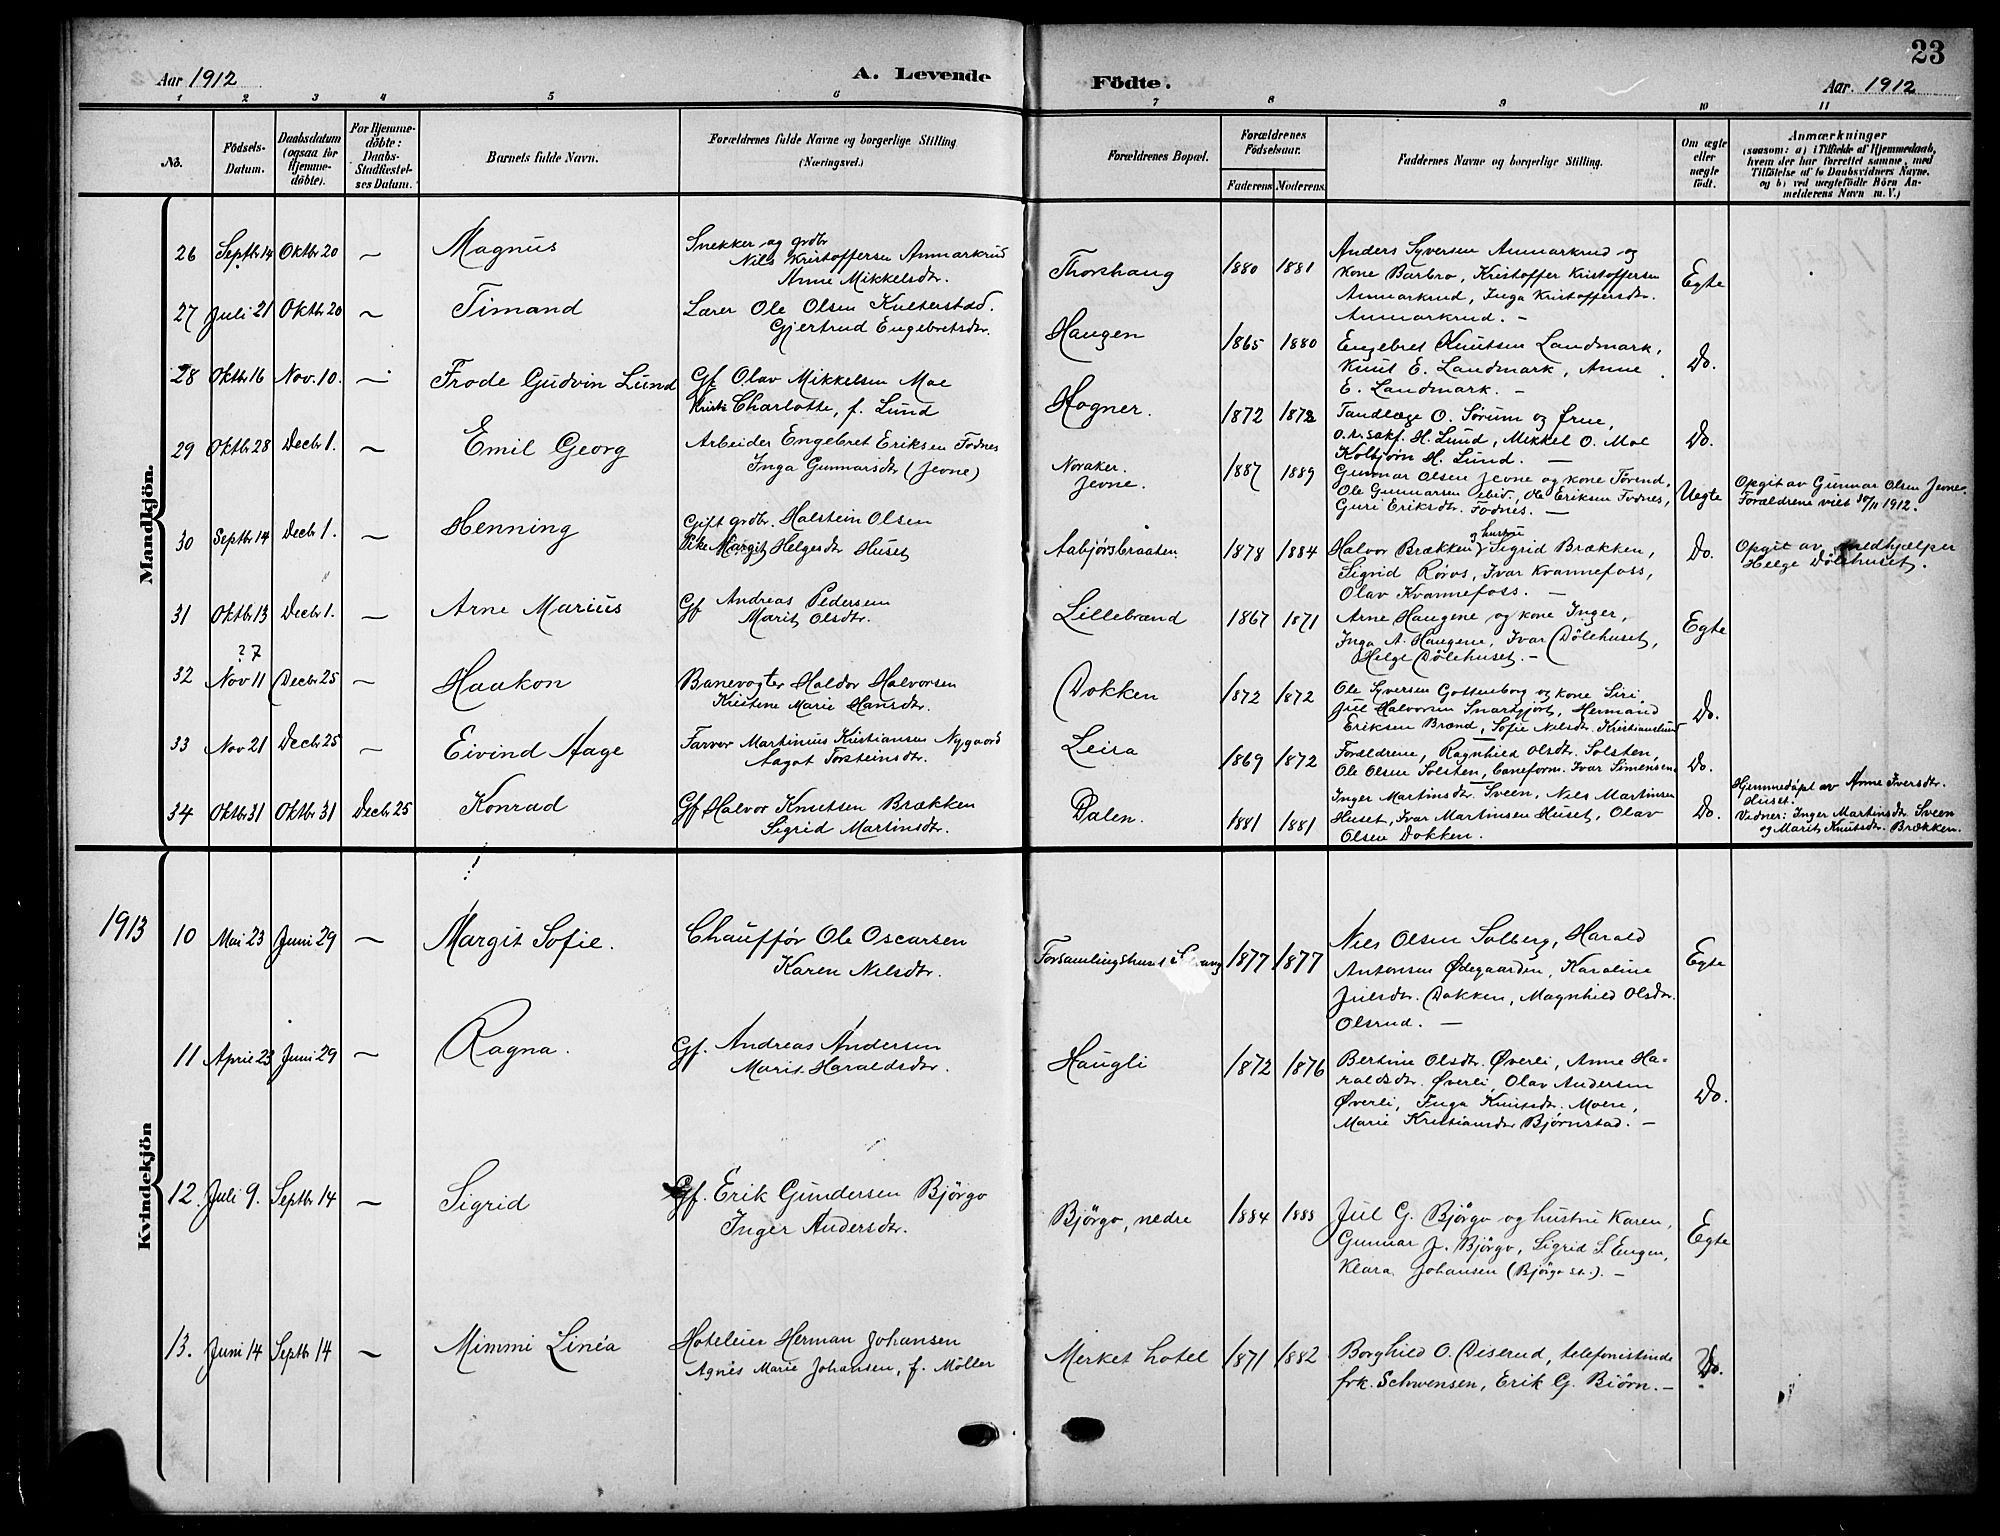 23
Aar 1912
A. Levende
Födte.
Aar. 1912
1 2 3 4 5 6 7 8 9 10 11
No.
Födsels-
Datum.
Daabsdatum
(ogsaa for
Hjemme-
döbte).
For Hjemme-
döbte:
Daabs-
Stadfæstel-
ses Datum.
Barnets fulde Navn.
Forældrenes fulde Navne og borgerlige Stilling
(Næringsvei.)
Forældrenes Bopæl.
Forældrenes
Födselsaar.
Faderens
Moderens.
Faddernes Navne og borgerlig Stilling.
Om ægte
eller
uægte
født.
Anmærkninger
(saasom: a) i Tilfælde af Hjemmedaab,
hvem der har forrettet samme, med
Tilföielse af to Daabsvidners Navne,
og b) ved uægtefödte Börn An-
melderens Navn m. V.)
Mandkjön.
26 Septbr 14 Oktbr 20 — Magnus
Snekker og grdbr
Nils Kristoffersen Anmarkrud
Anne Mikkelsdtr.
Thorshaug 1880 1881
Anders Syversen Anmarkrud og
kone Barbro, Kristoffer Kristoffersen
Anmarkrud, Inga Kristoffersdtr.
Anmarkrud. —
Egte
27 Juli 21 Oktbr 20 — Timand
Lærer Ole Olsen Kulterstad.
Gjertrud Engebretsdtr.
Haugen 1865 1880
Engebret Knutsen Landmark,
Knut E. Landmark, Anne
E. Landmark. —
Do.
28 Oktbr 16 Nov. 10. — Frode Gudvin Lund
Gf. Olav Mikkelsen Moe
Charlotte, f. Lund
Hogner. 1872 1872
Tandlæge O. Sørum og frue,
o.r.sakf. H. Lund, Mikkel O. Moe
Kolbjørn H. Lund. —
Do.
29 Oktbr 28 Decbr 1. — Emil Georg
Arbeider Engebret Eriksen Fodnes
Inga Gunnarsdtr (Jevne)
Noraker.
Jevne. 1887 1889
Gunnar Olsen Jevne og kone Torend,
Ole Gunnarsen ibid., Ole Eriksen Fodnes,
Guri Eriksdtr. Fodnes. —
Uegte
Opgit av Gunnar Olsen Jevne.
Forældrene viet 30/11 1912.
30 Septbr 14 Decbr 1. — Henning
Gift grdbr. Halstein Olsen
Pike Margit Helgesdtr Huset
Aabjørsbraaten 1878 1884
og hustru
Halvor Brækken, Sigrid Brækken,
Sigrid Røros, Ivar Kvannefoss,
Olav Kvannefoss. —
Do.
Opgit av medhjælper
Helge Dölehuset.
31 Oktbr 13 Decbr 1. — Arne Marius
Gf Andreas Pedersen
Marit Olsdtr.
Lillebrænd 1867 1871
Arne Haugene og kone Inger,
Inga A. Haugene, Ivar Dölehuset,
Helge Dölehuset. —
Egte
? 7
32 Nov 11 Decbr 25 — Haakon
Banevogter Haldor Halvorsen
Kristine Marie Hansdtr.
Dokken 1872 1872
Ole Syversen Gottenborg og kone Siri,
Jul Halvorsen , Hermand
Eriksen Brænd, Sofie Nilsdtr. Kristianslund
Do.
33 Nov 21 Decbr 25 — Eivind Aage
Farver Martinius Kristiansen Nygaard
Aagot Torsteinsdtr.
Leira 1869 1872
Forældrene, Ragnhild Olsdtr. Solsten
Ole Olsen Solsten, baneform. Ivar Simensen
Do.
34 Oktbr 31 Oktbr 31 Decbr 25 Konrad
Gf Halvor Knutsen Brækken
Sigrid Martinsdtr.
Dalen. 1881 1881
Inger Martinsdtr. Sveen, Nils Martinsen
Huset, Ivar Martinsen Huset, Olav
Olsen Dokken.
Do.
Hjemmedöpt av Anne Iversdtr.
Huset.
Vidner: Inger Martinsdtr Sveen
og Marit Knutsdtr. Brækken.
Kvindekjön
1913
10 Mai 23 Juni 29 — Margit Sofie.
Chauffør Ole Oscarsen
Karen Nilsdtr.
Forsamlingshuset 1877 1877
Nils Olsen Solberg, Harald
Antonsen Ødegaarden, Karoline
Julsdtr. Dokken, Magnhild Olsdtr.
Olsrud. —
Egte
11 April 23 Juni 29 — Ragna.
Gf. Andreas Andersen
Marit Haraldsdtr.
Haugli 1872 1876
Bertine Olsdtr. Øverli, Anne Ha-
raldsdtr. Øverli, Olav Andersen
Øverli, Inga Knutsdtr. Moen,
Marie Kristiansdtr Bjørnstad. —
Do.
12. Juli 9. Septbr 14 — Sigrid
Gf. Erik Gundersen Bjørgo
Inger Andersdtr.
Bjørgo, nedre 1884 1888
Jul G. Bjørgo og hustru Karen,
Gunnar J. Bjørgo, Sigrid S. Engen,
Klara Johansen (Bjørgo st.). —
Egte
13. Juni 14 Septbr 14 — Mimmi Linéa
Hoteleier Herman Johansen
Agnes Marie Johansen, f. Möller
Merket hotel 1871 1882
Borghild O. Diserud, telefonistinde
frk. Schwensen, Erik G. Biörn. —
Do.